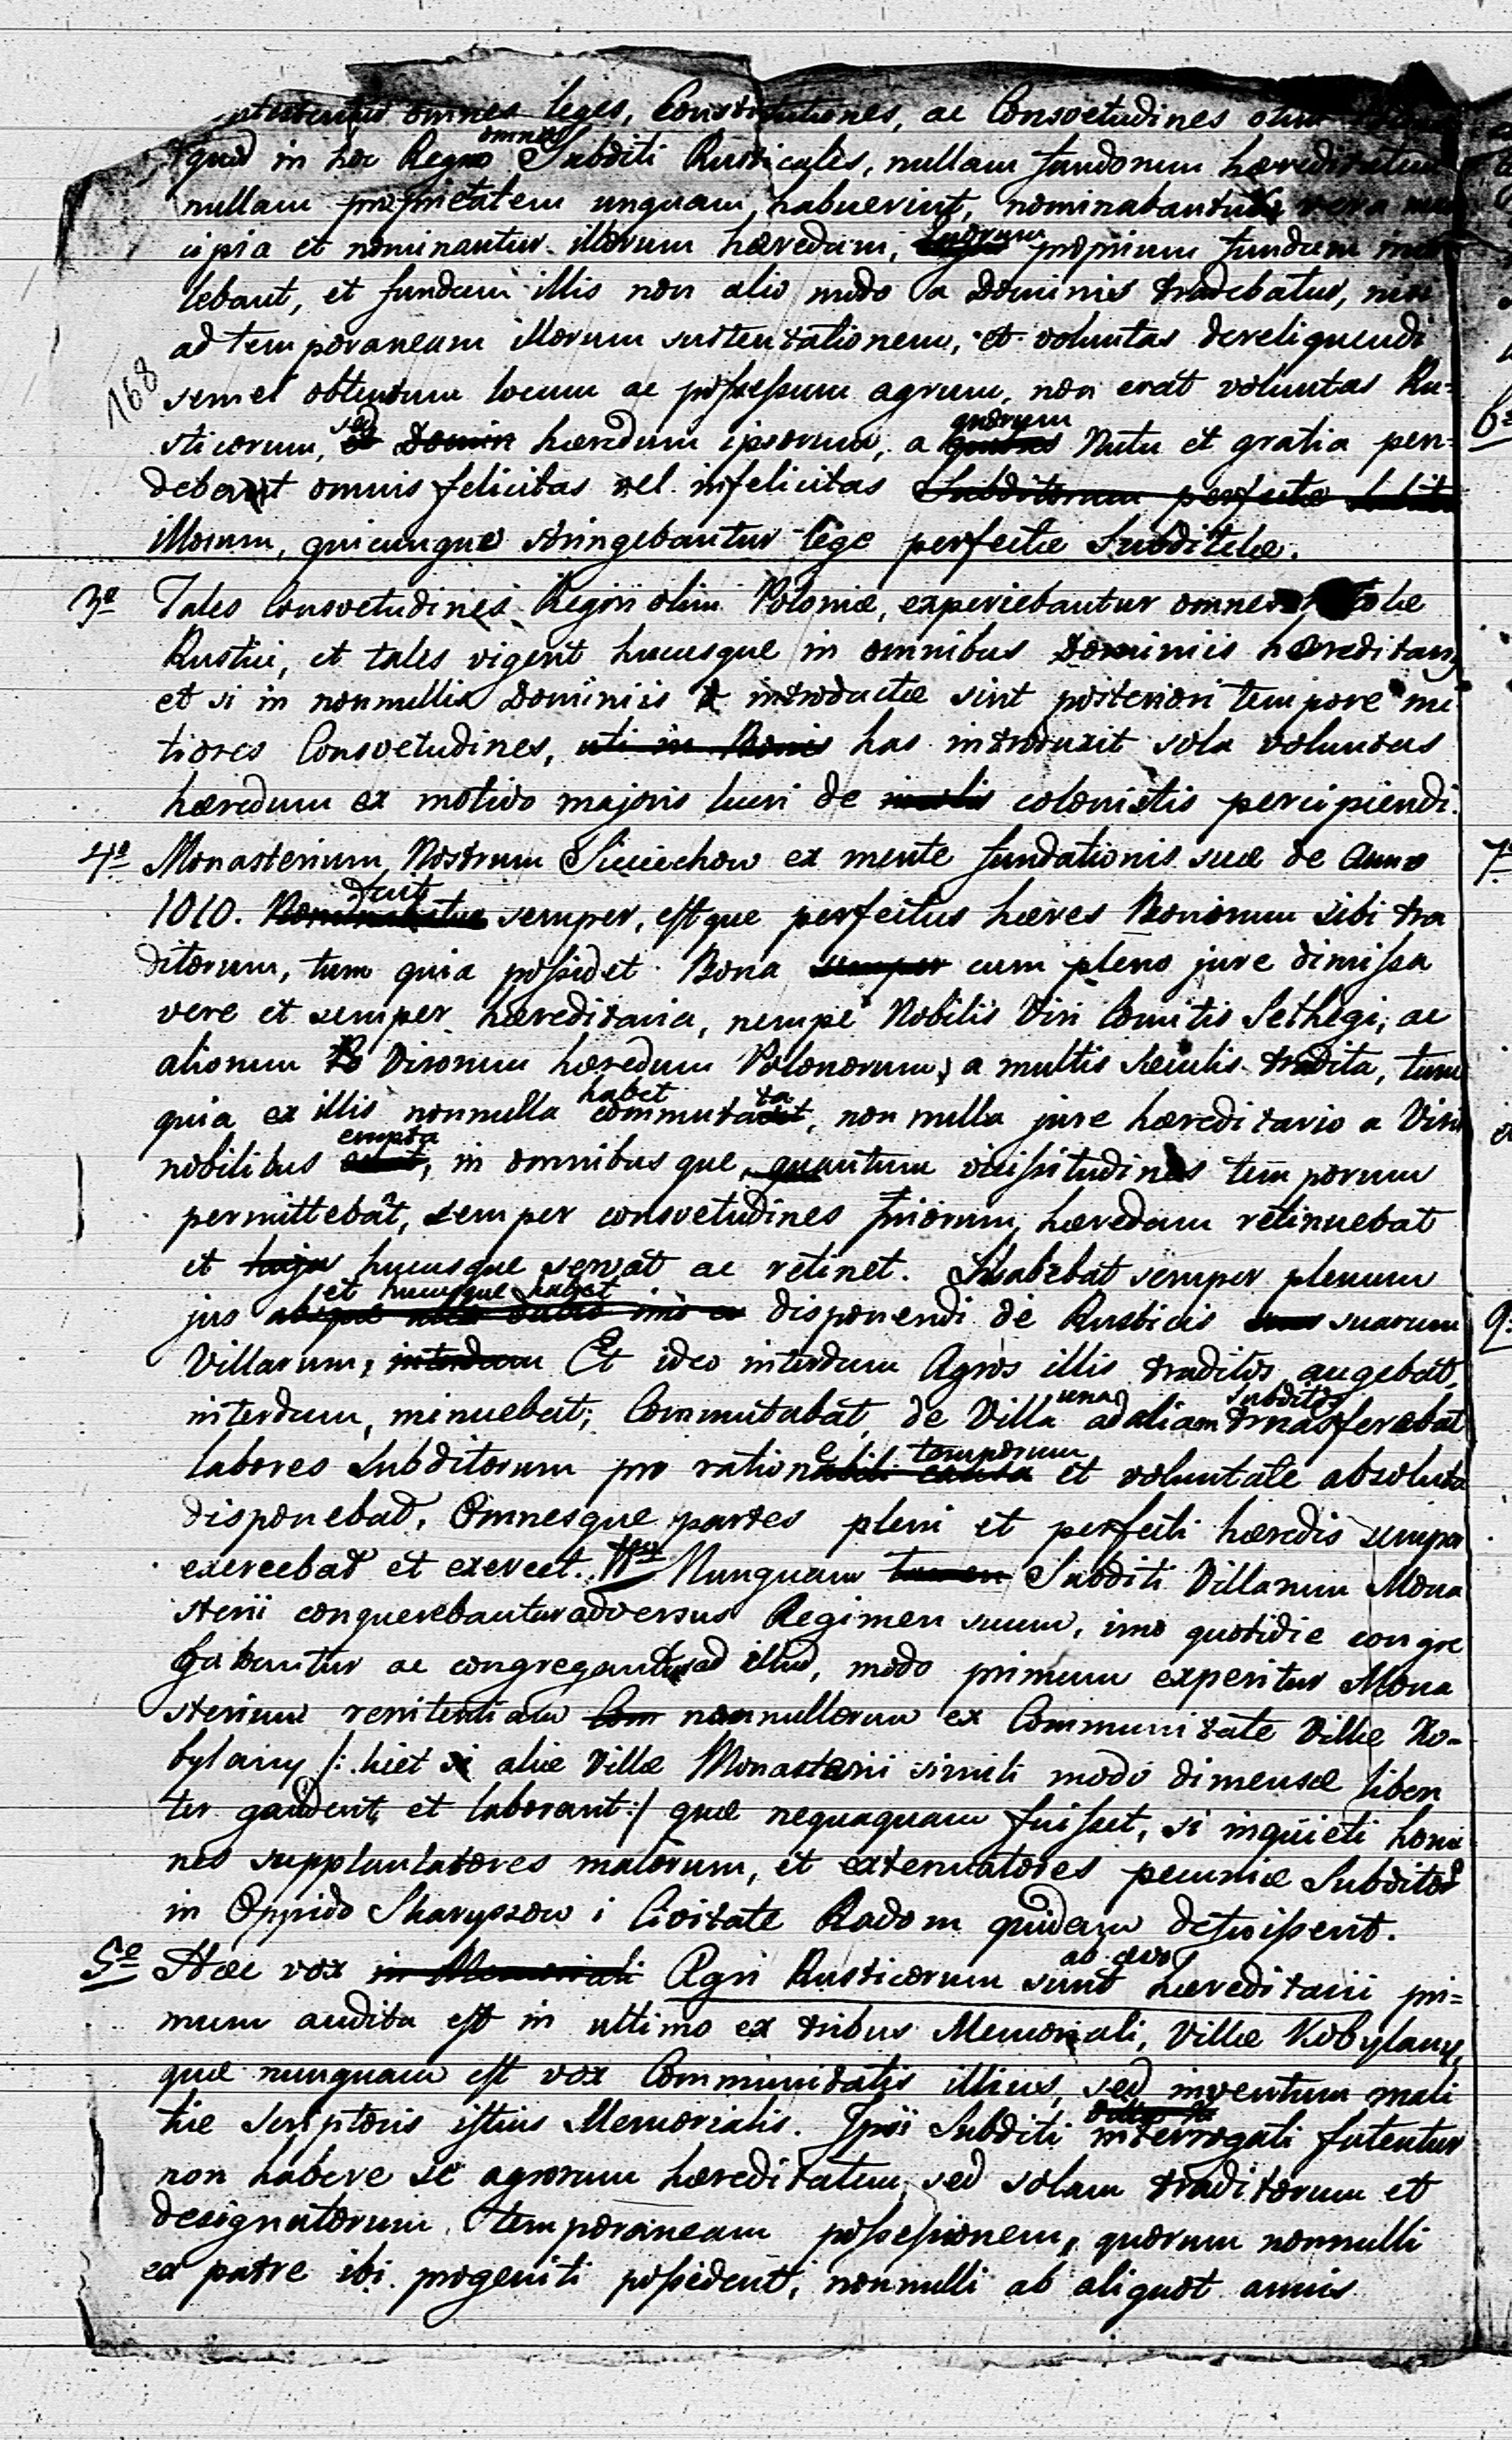 omnes leges, Constitutiones, ac Consvetudines olim
quod in hoc Regno omnes Subditi Rusticales, nullam fundorum hæreditatem
nullam proprietatem unquam habuerint, nominabantur vera man
cipia et nominantur illorum hæredum, quorum proprium fundum inco
lebant, et fundum illis non alio modo a Dominis tradebatur, nisi
ad temporaneam illorum sustentationem, et voluntas derelinquendi
168
semel obtentum locum ac possessum agrum, non erat voluntas Ru-
sticorum, sed hæredum ipsorum, a quorum Nutu et gratia pen-
debant omnis felicitas vel infelicitas Subditorum perfectæ
illorum, quicunque stringebantur lege perfectæ Subditelæ.
3º Tales Consvetudines Regni olim Poloniæ, experiebantur omnes
Rustici, et tales vigent hucusque in omnibus Dominiis hæreditariis
et si in nonnullis Dominiis introductæ sint posteriori tempore mi
tiores Consvetudines, uti in Bonis has introduxit sola voluntas
hæredum ex motivo majoris lucri de incolis colonistis percipiendi.
4º Monasterium Nostrum Sieciechow ex mente fundationis suæ de Anno
1010. Nominabatur fuit semper, estque perfectus hæres Bonorum sibi tra
ditorum, tum quia possidet Bona semper cum pleno jure dimissa
vere et semper hæreditaria, nempe Nobilis Viri Comitis Sethegi, ac
aliorum Virorum hæredum Polonorum, a multis sæculis tradita, tum
quia ex illis nonnulla habet commutata, non nulla jure hæreditario a Viris
nobilibus empta, in omnibusque, quantum vicissitudines temporum
permittebat, semper consvetudines priorum hæredum retinuebat
et hucusque servat ac retinet. Habebat semper plenum
jus et hucusque habet disponendi de Rusticis suarum
Villarum, interdum Et ideo interdum Agros illis traditos augebat,
interdum, minuebat; Commutabat, de Villa una ad aliam subditos transferebat
labores Subditorum pro ratione temporum et voluntate absoluta
disponebat. Omnesque partes pleni et perfecti hæredis semper
exercebat et exercet. Nunquam tamen Subditi Villarum Mona
sterii conquerebantur adversus Regimen suum, imo quotidie congre
gabantur ac congregantur ad illud, modo primum experitur Mona
sterium renitentiam Com nonnullorum ex Communitate Villæ Ko-
bylany /: licet aliæ Villæ Monasterii simili modo dimensæ liben
ter gaudent, et laborant:/ quæ nequaquam fuisset, si inquieti homi
nes supplantatores malorum, et extenuatores pecuniæ Subditor
in Oppido Skaryszow i Civitate Radom quidam defuissent.
5º Hæc vox in Memoriali Agri Rusticorum sunt ab ævo hæreditarii pri=
mum audita est in ultimo ex tribus Memoriali, Villæ Kobylany,
quæ nunquam est vox Communitatis illius, sed inventum mali
tiæ scriptoris istius Memorialis. Ipsi Subditi interrogati fatentur
non habere se agrorum hæreditatem, sed solam traditorum et
designatorum temporaneam possessionem, quorum nonnulli
ex patre ibi progeniti possident, nonnulli ab aliquot annis